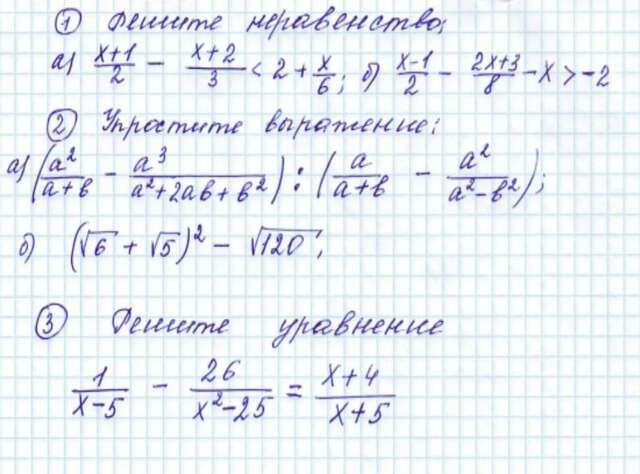 ① Решите неравенство;
а) (x+1)/2 - (x+2)/3 < 2 + x/6; б) (x-1)/2 - (2x+3)/8 - x > -2
② Упростите выражение:
а) (a²/(a+b) - a³/(a²+2ab+b²)) : (a/(a+b) - a²/(a²-b²));
б) (√6 + √5)² - √120;
③ Решите уравнение
1/(x-5) - 26/(x²-25) = (x+4)/(x+5)